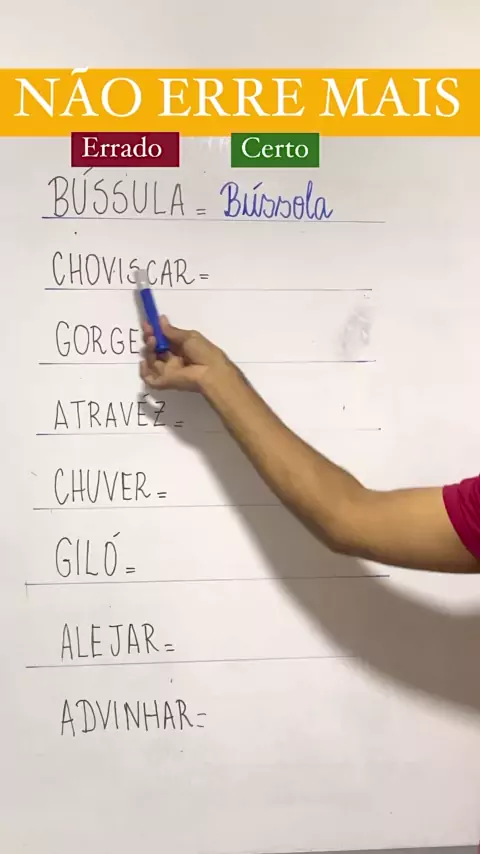 NÃO ERRE MAIS
Errado Certo
BÚSSULA = Bússola
CHOVISCAR =
GORGE
ATRAVEZ =
CHUVER =
GILÓ =
ALEJAR =
ADVINHAR =